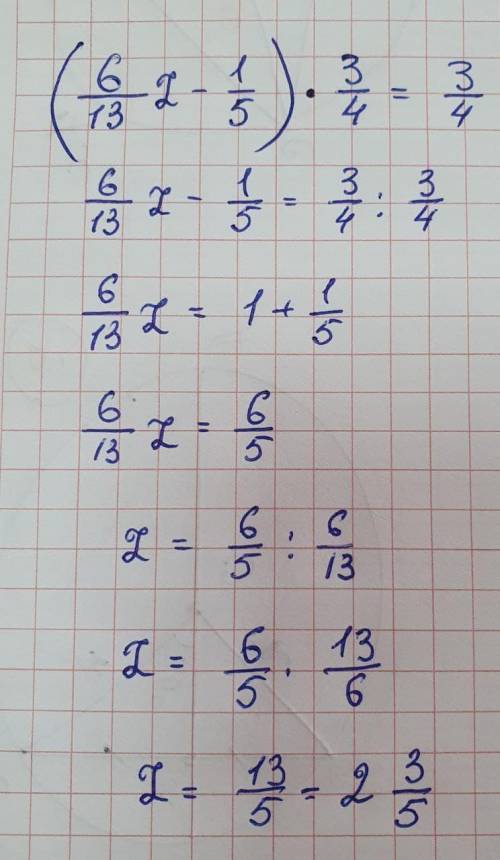 (6/13 z - 1/5) · 3/4 = 3/4
6/13 z - 1/5 = 3/4 : 3/4
6/13 z = 1 + 1/5
6/13 z = 6/5
z = 6/5 : 6/13
z = 6/5 · 13/6
z = 13/5 = 2 3/5